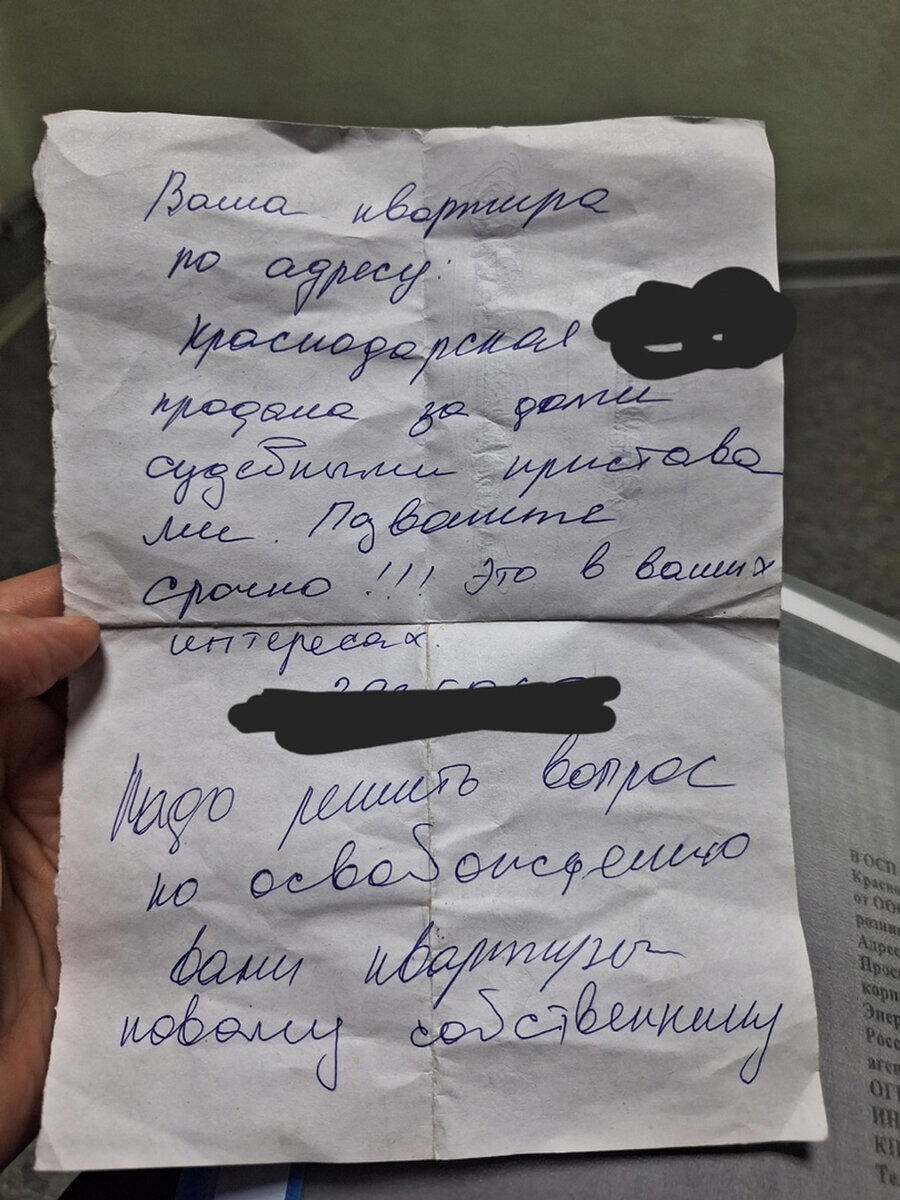 Ваша квартира
по адресу:
Краснодарская
продана за долги
судебными пристава
ми. Позвоните
срочно!!! Это в ваших
интересах
Надо решить вопрос
по освобождению
вами квартиры
новому собственнику
В ОСП
Красно
от Обг
розни
Адрес
Прос
корп
Энер
Росс
аген
ОГ
ИН
КП
Те